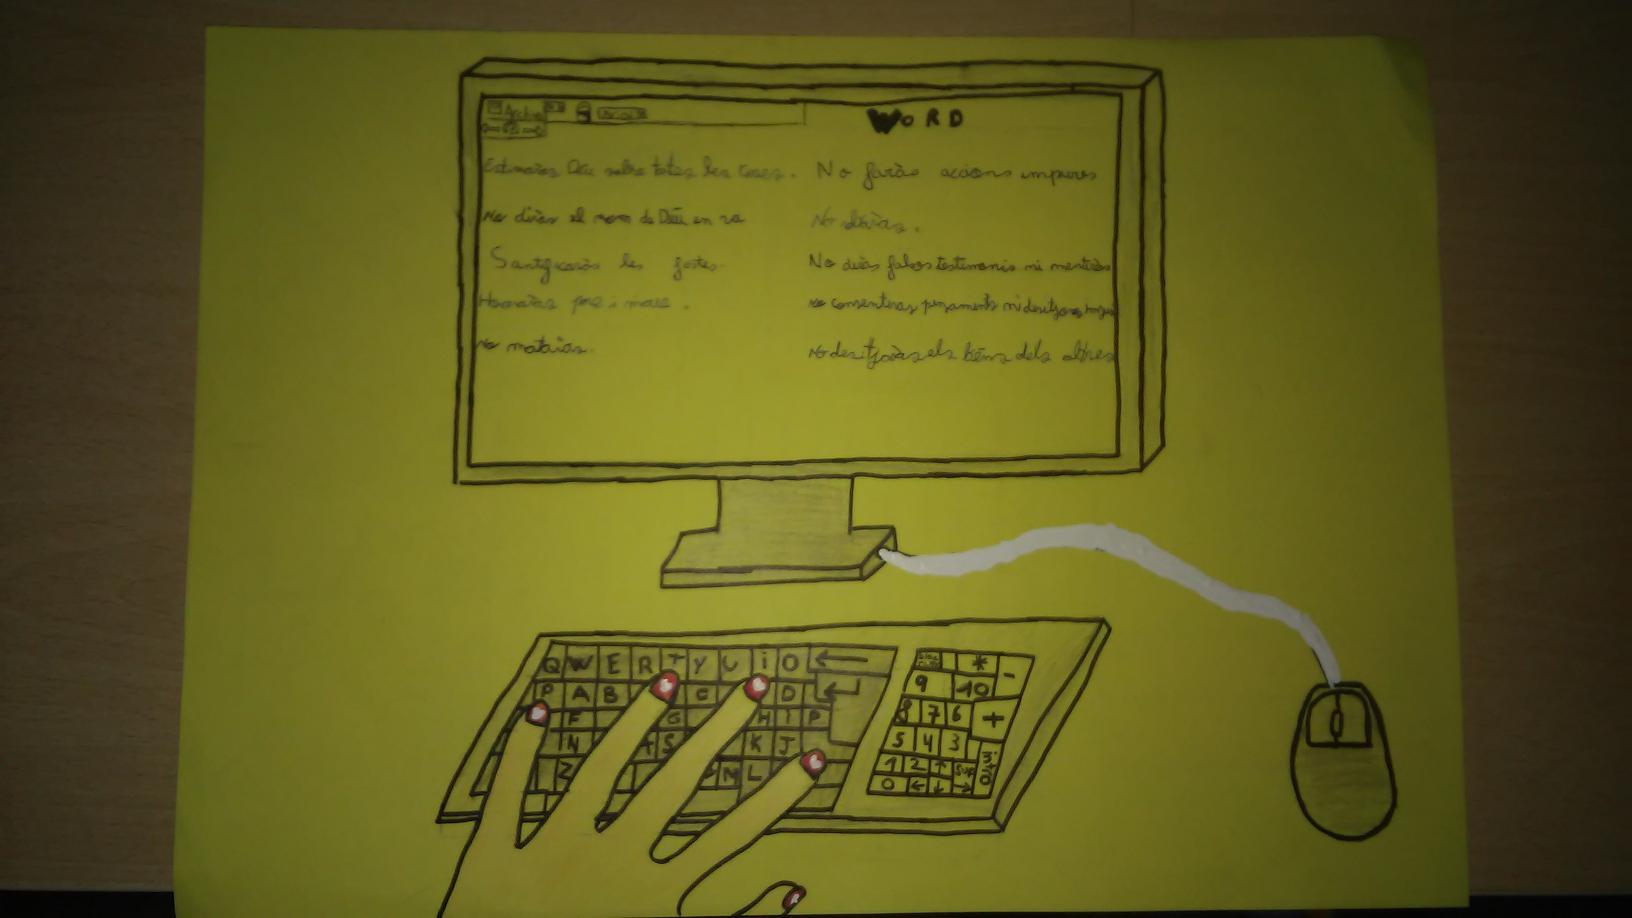 Archivo
WORD
Estimaràs Déu sobre totes les coses.
No diràs el nom de Déu en va
Santificaràs les festes.
Honraràs pare i mare.
No mataràs.
No faràs accions impures
No robaràs.
No diràs falsos testimonis ni mentiràs
No consentiras pensaments ni desitjos impurs
No desitjaràs els béns dels altres
Q W E R T Y U i O ←
P A B C D
F G H I P
N A S K J
Z M L
* -
9 10
8 7 6 +
5 4 3
1 2 ↑ Sup
0 ← ↓ →